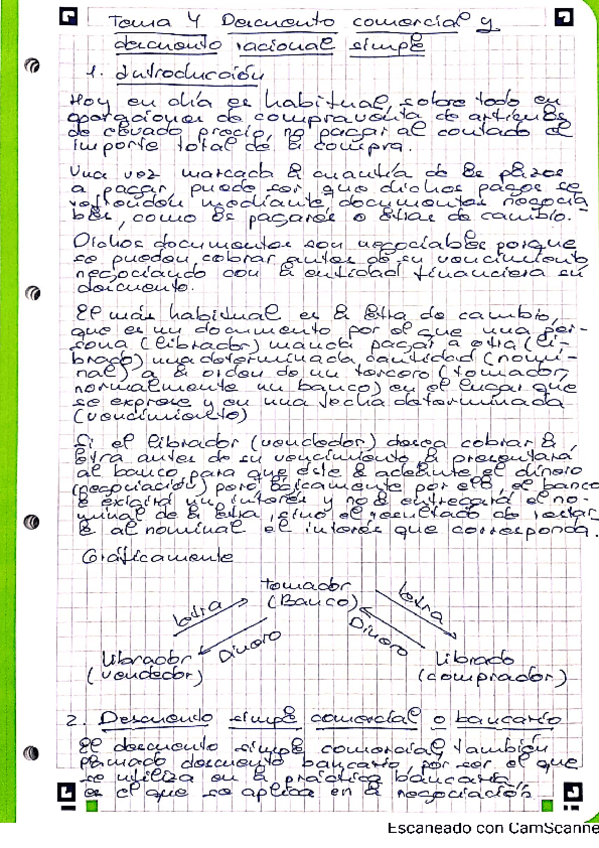 Tema 4 Descuento comercial y
descuento racional simple
1. Introducción
Hoy en día es habitual, sobre todo en
operaciones de compraventa de artículos
de elevado precio, no pagar al contado el
importe total de la compra.
Una vez marcada la cuantía de los plazos
a pagar puede ser que dichos pagos se
mediante documentos negocia
bles, como los pagarés o letras de cambio.
Dichos documentos son negociables porque
se pueden cobrar antes de su vencimiento
negociando con la entidad financiera su
descuento.
El más habitual es la letra de cambio,
que es un documento por el que una per-
sona (librador) manda pagar a otra (li-
brado) una determinada cantidad (nomi-
nal) a la orden de un tercero (tomador,
normalmente un banco) en el lugar que
se exprese y en una fecha determinada
(vencimiento)
Si el librador (vendedor) desea cobrar la
letra antes de su vencimiento la presentará
al banco para que éste le adelante el dinero
(negociación) pero lógicamente por ello el banco
le exigirá un interés y no le entregará el no-
minal de la letra, sino el resultado de restar
le al nominal el interés que corresponda.
Gráficamente
Tomador
(Banco)
letra
letra
Dinero
Dinero
Librador
(vendedor)
Librado
(comprador)
2. Descuento simple comercial o bancario
El descuento simple comercial, también
llamado descuento bancario, por ser el que
se utiliza en la práctica bancaria,
es el que se aplica en la negociación
Escaneado con CamScanne